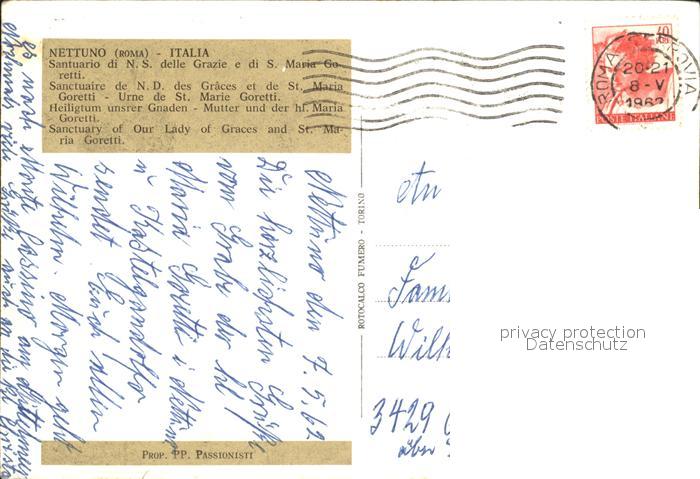 NETTUNO (ROMA) - ITALIA
Santuario di N. S. delle Grazie e di S. Maria Go-
retti.
Sanctuaire de N. D. des Grâces et de St. Maria
Goretti - Urne de St. Marie Goretti.
Heiligtum unsrer Gnaden - Mutter und der hf. Maria
Goretti.
Sanctuary of Our Lady of Graces and St. Ma-
ria Goretti.
PROP. PP. PASSIONISTI
ROTOCALCO FUMERO - TORINO
ROMA FERROVIA
20-21
8-V
1962
40
POSTE ITALIANE
Nettuno den 7.5.62
Die herzlichsten Grüße
vom Grabe der hl
Maria Goretti i Nettuno
u Kastelgandolfo
sendet Euch allen
Wilhelm. Morgen geht
es nach Monte Cassino am
An
Fam
Wilh
3429
über
privacy protection
Datenschutz